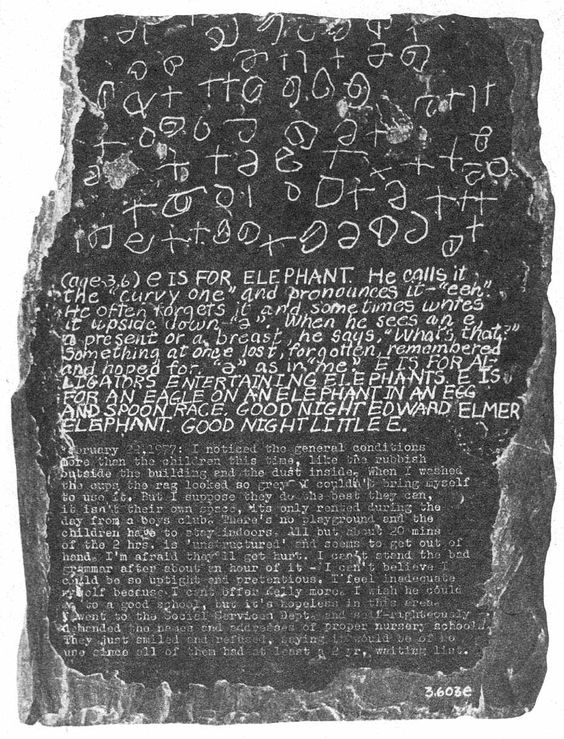 (age 3.6) e IS FOR ELEPHANT. He calls it
the "curvy one" and pronounces it - "eeh."
He often forgets it and sometimes writes
it upside down - "ə". When he sees an e,
a present or a breast, he says, "What's that?"
Something at once lost, forgotten, remembered
and hoped for. "ə" as in "me". E IS FOR AL-
LIGATORS ENTERTAINING ELEPHANTS. E IS
FOR AN EAGLE ON AN ELEPHANT IN AN EGG
AND SPOON RACE. GOOD NIGHT EDWARD ELMER
ELEPHANT. GOOD NIGHT LITTLE E.
1977: I noticed the general conditions
more than the children this time, like the rubbish
outside the building and the dust inside. When I washed
the cups the rag looked so grey I couldn't bring myself
to use it. But I suppose they do the best they can,
it isn't their own space, its only rented during the
day from a boys club. There's no playground and the
children have to stay indoors. All but about 20 mins
of the 2 hrs. is 'unstructured' and seems to get out of
hand. I'm afraid they'll get hurt. I can't stand the bad
grammar after about an hour of it - I can't believe I
could be so uptight and pretentious. I feel inadequate
myself because I cant offer Kelly more. I wish he could
go to a good school, but it's hopeless in this area.
I went to the Social Services Dept. and self-righteously
demanded the names and addresses of proper nursery schools.
They just smiled and refused, saying it would be of no
use since all of them had at least a 2 yr. waiting list.
3.603e